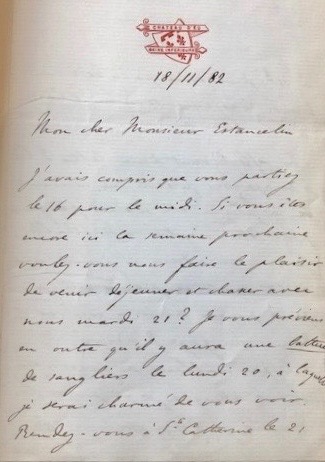 CHATEAU D'EU
SEINE INFERIEURE
18/11/82
Mon cher Monsieur Estancelin
J'avais compris que vous partiez
le 16 pour le midi. Si vous êtes
encore ici la semaine prochaine
voulez-vous nous faire le plaisir
de venir déjeuner et chasser avec
nous mardi 21? Je vous préviens
en outre qu'il y aura une battue
de sangliers le lundi 20, à laquelle
je serai charmé de vous voir.
Rendez-vous à Ste Catherine le 21